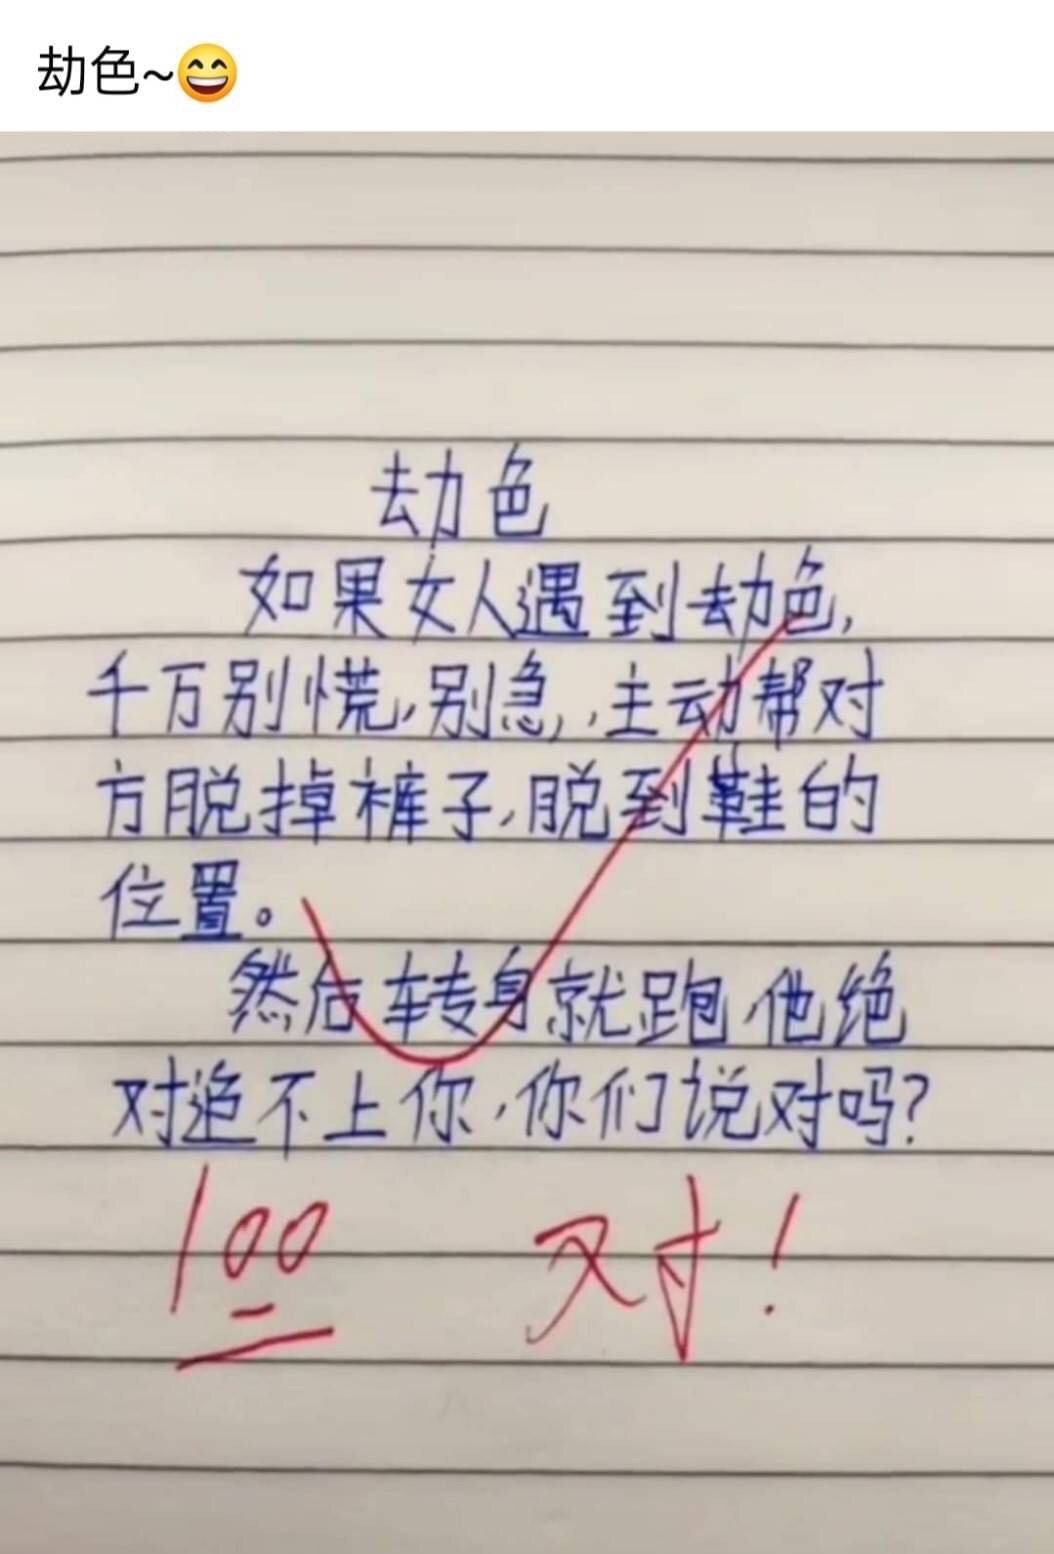 劫色~😄
劫色
如果女人遇到劫色,
千万别慌,别急,,主动帮对
方脱掉裤子,脱到鞋的
位置。
然后转身就跑,他绝
对追不上你,你们说对吗?
100 对!